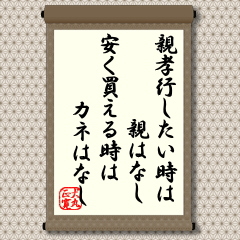 親孝行したい時は
親はなし
安く買える時は
カネはなし